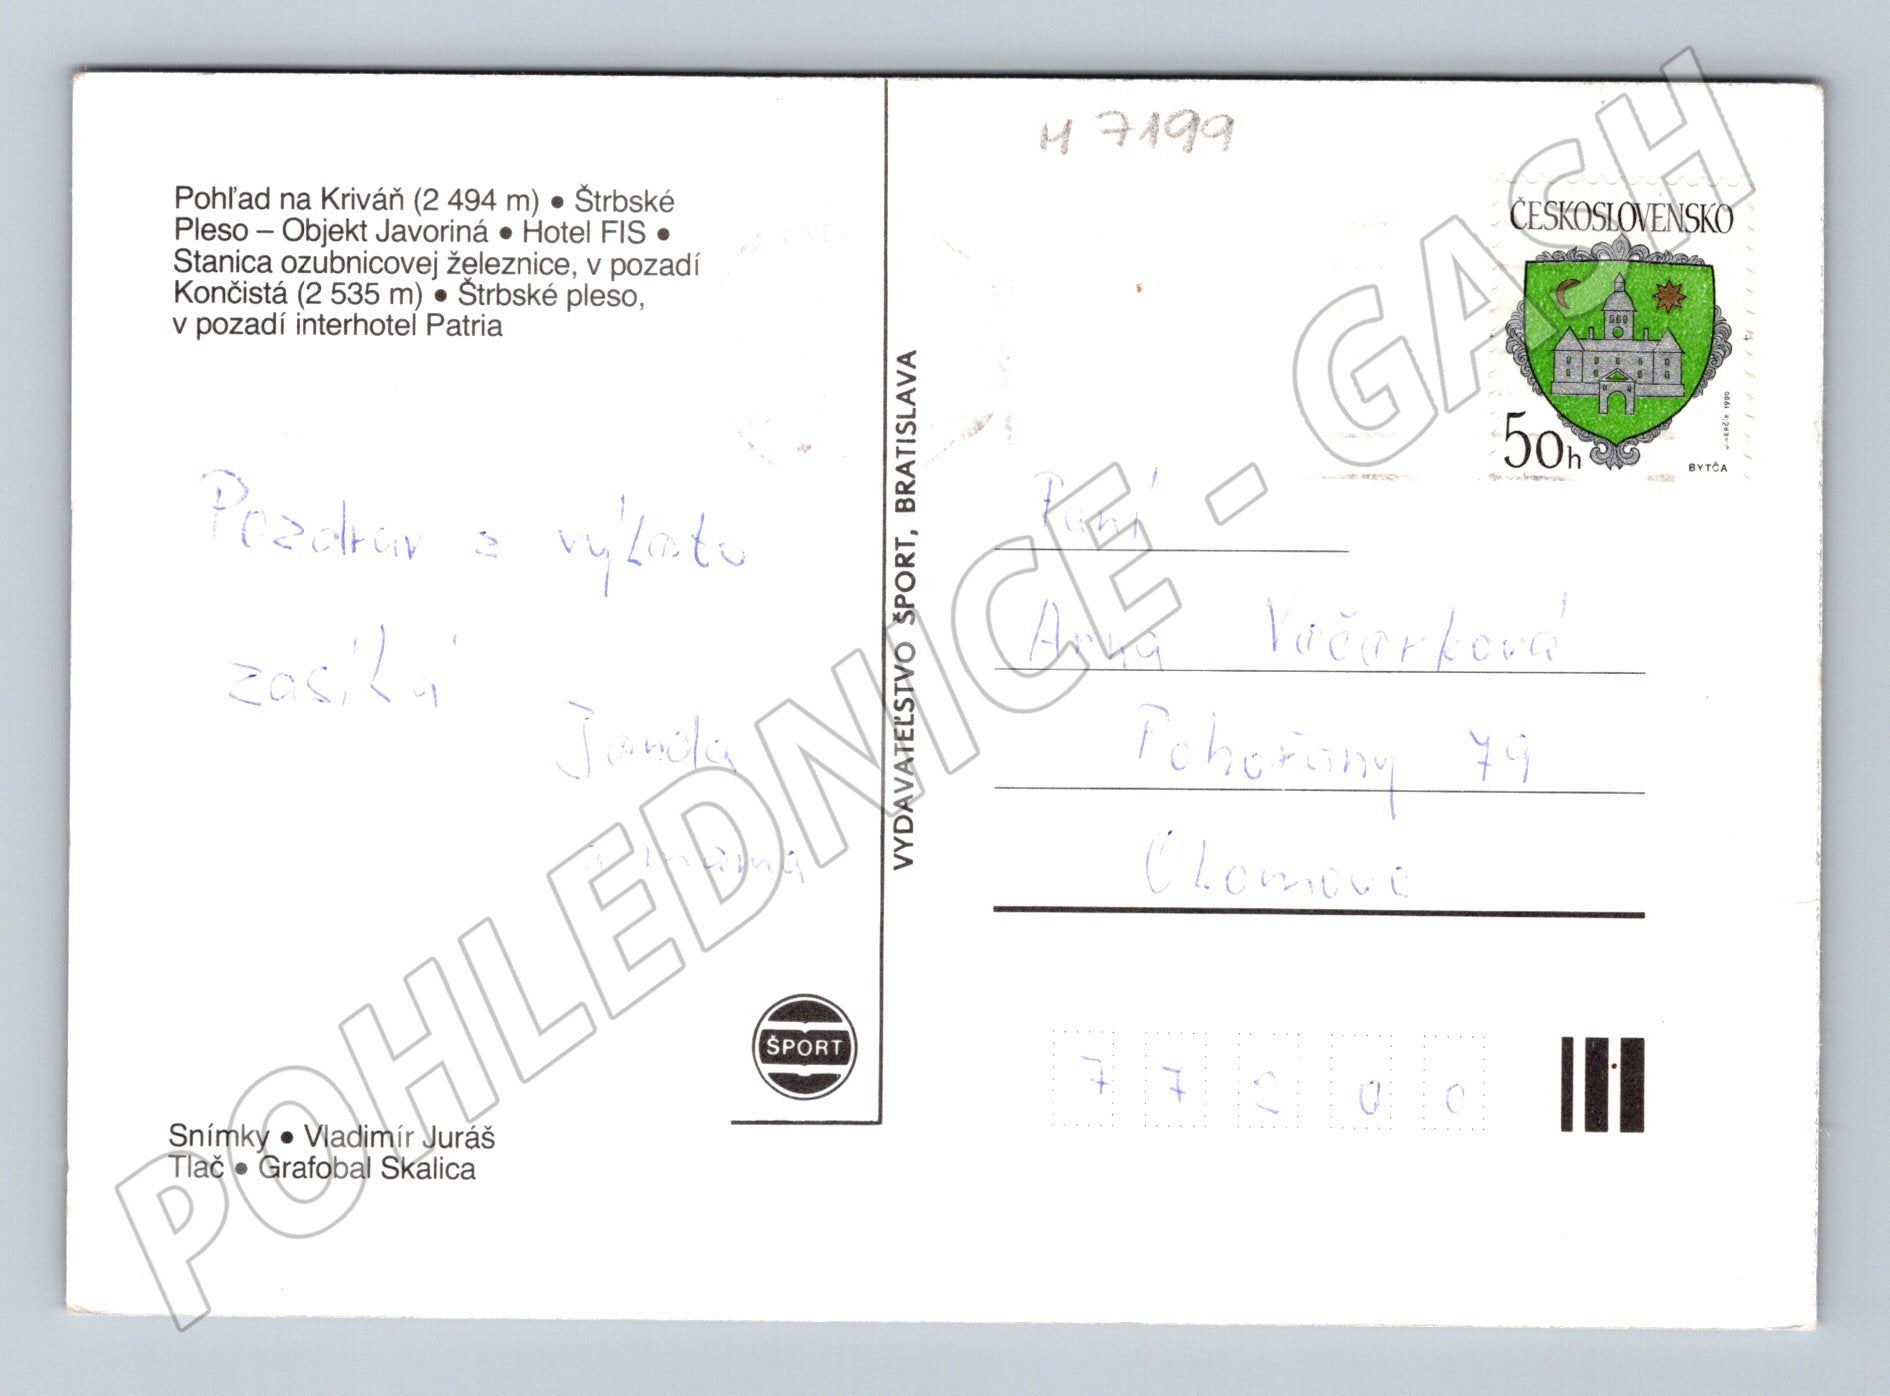 M 7199
Pohľad na Kriváň (2 494 m) • Štrbské
Pleso – Objekt Javoriná • Hotel FIS •
Stanica ozubnicovej železnice, v pozadí
Končistá (2 535 m) • Štrbské pleso,
v pozadí interhotel Patria
Pozdrav z výletu
zasílá
Jarda
a mama
ŠPORT
Snímky • Vladimír Juráš
Tlač • Grafobal Skalica
VYDAVATEĽSTVO ŠPORT, BRATISLAVA
ČESKOSLOVENSKO
50h
BYTČA
1990
Paní
Anna Vačarková
Pohořany 79
Olomouc
77200
POHLEDNICE - GASH